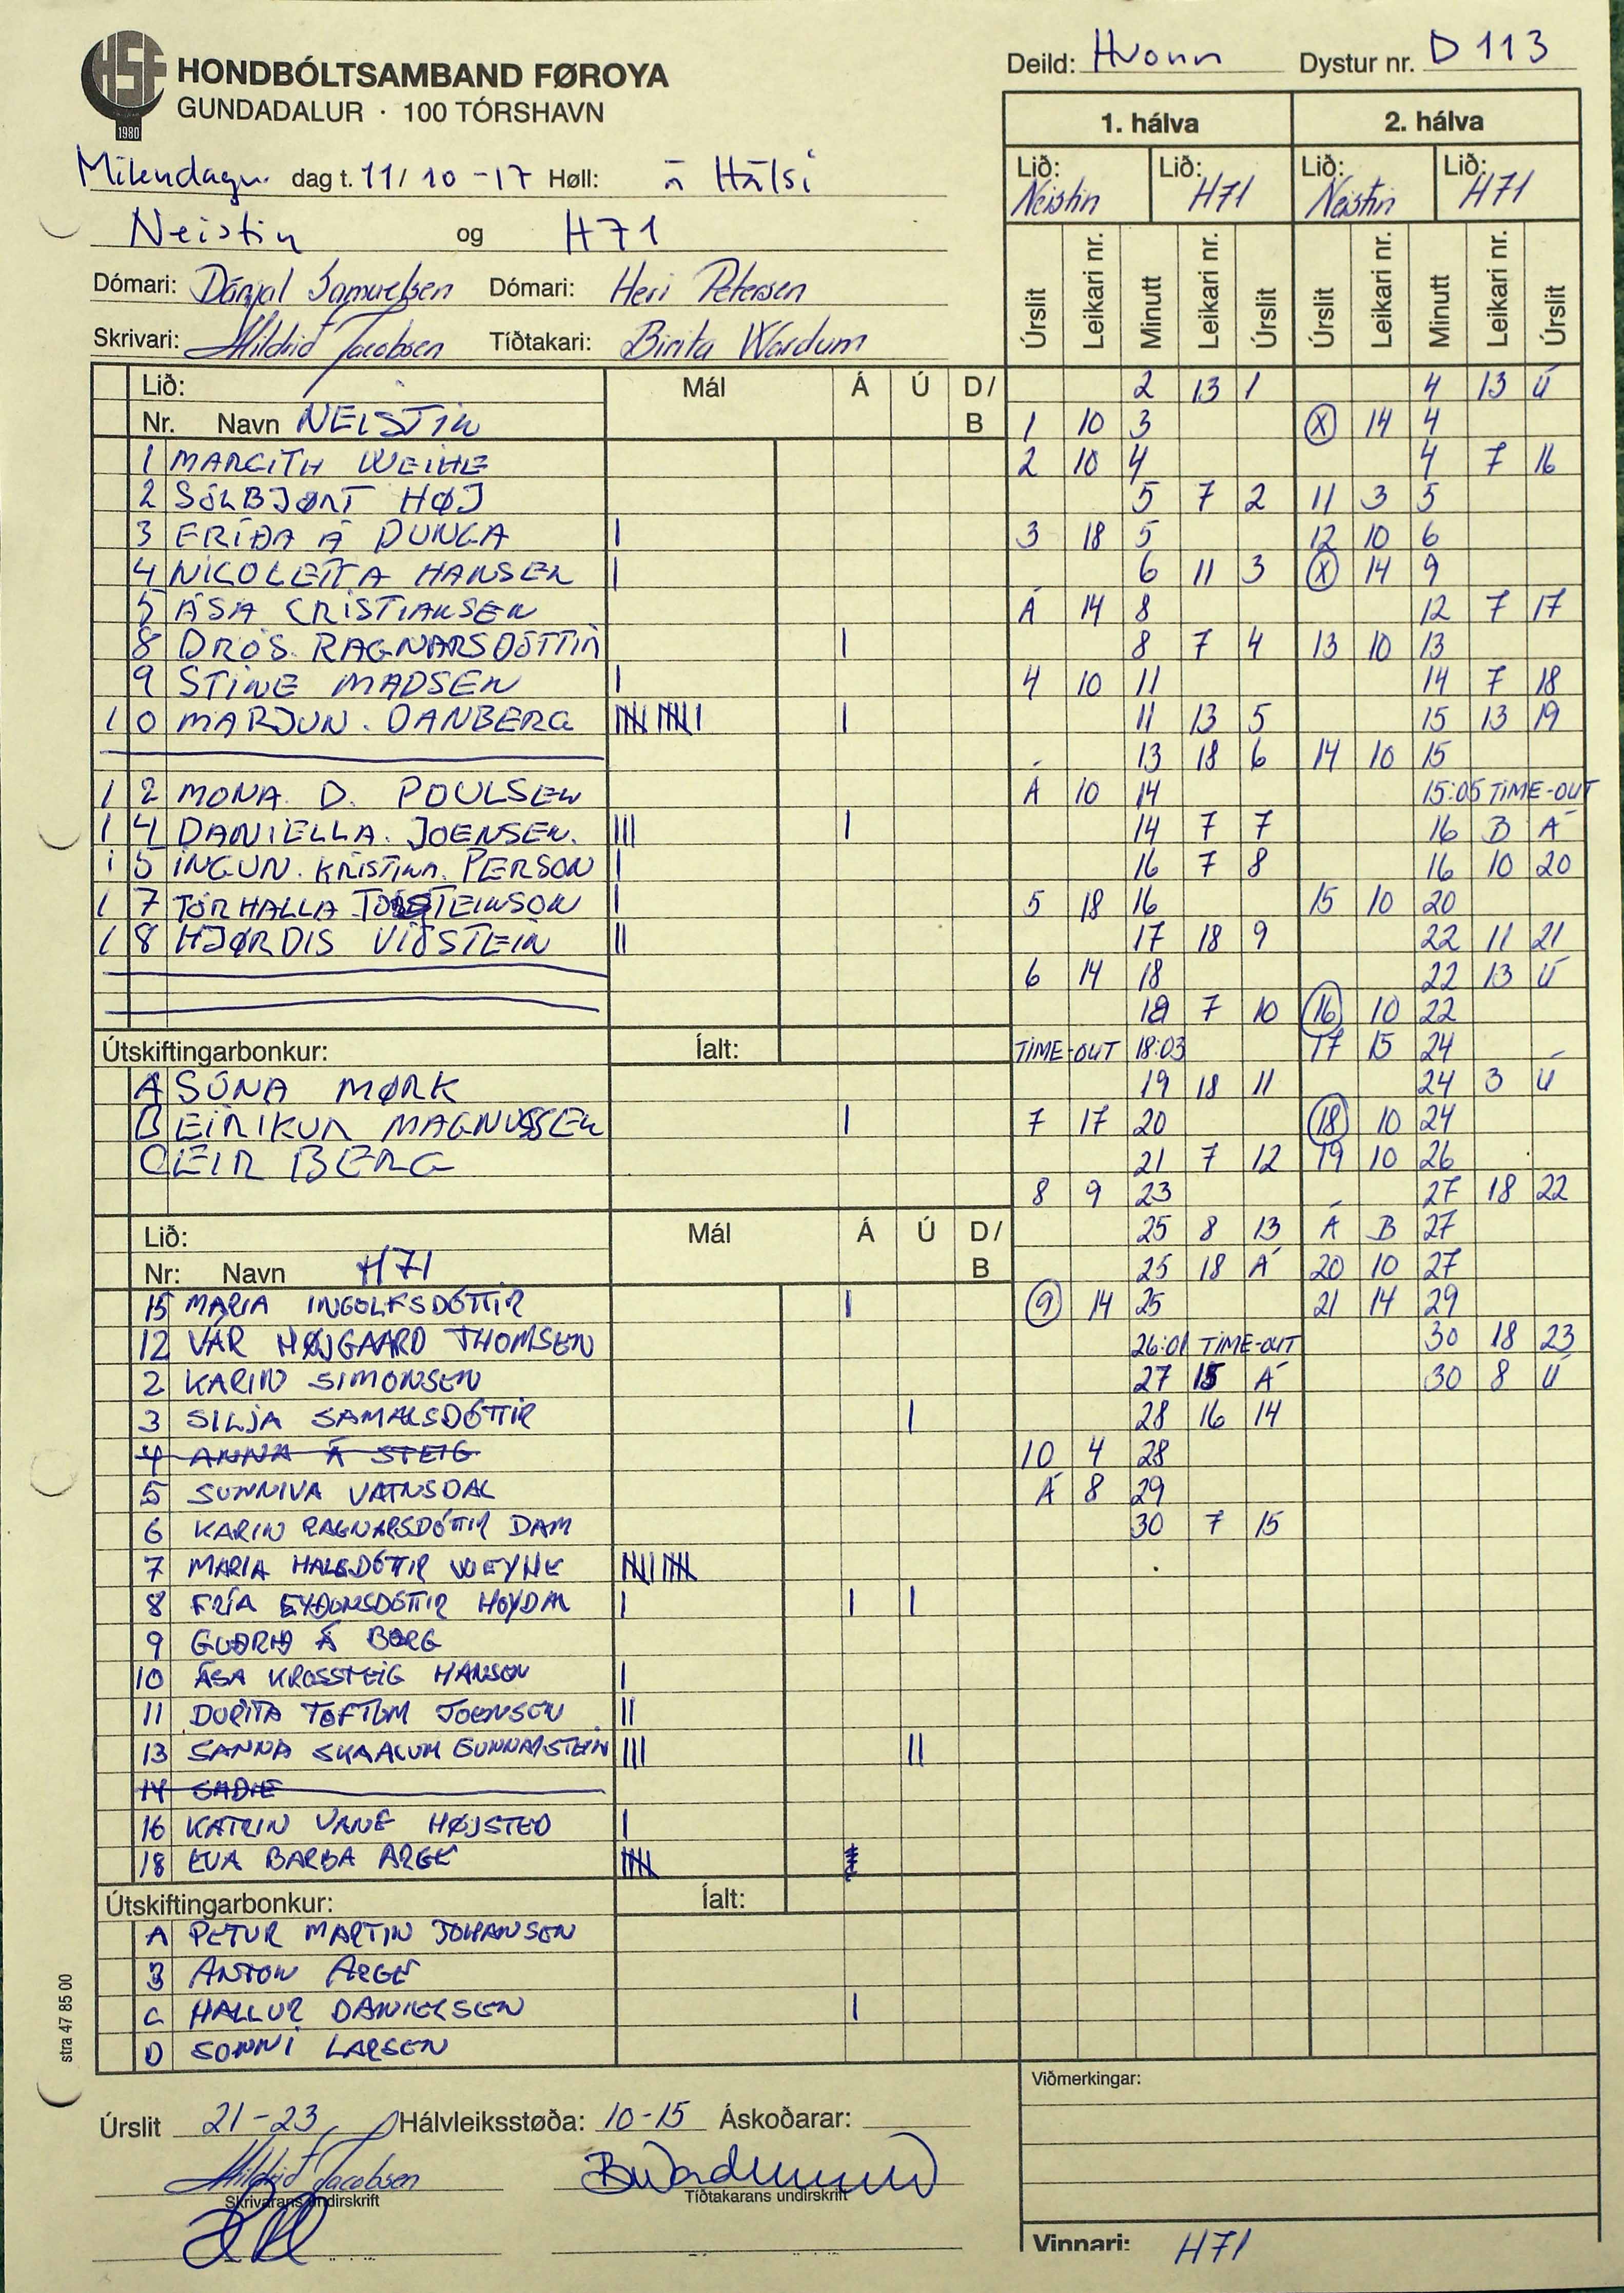 HSF
1980
HONDBÓLTSAMBAND FØROYA
GUNDADALUR · 100 TÓRSHAVN
Deild: Hvonn Dystur nr. D 113
dag t. 11/10-17 Høll: á Hálsi
Neistin og H71
Dómari: Dánjal Samuelsen Dómari: Heri Petersen
Skrivari: Hildrid Jacobsen Tíðtakari: Birita Wardum
1. hálva 2. hálva
Lið: Neistin Lið: H71 Lið: Neistin Lið: H71
Úrslit Leikari nr. Minutt Leikari nr. Úrslit Úrslit Leikari nr. Minutt Leikari nr. Úrslit
Lið: Mál Á Ú D/
Nr. Navn NEISTIN B
1 MARGITH WEIHE
2 SÓLBJØRT HØJ
3 FRÍÐA Á DUNGA I
4 NICOLETTA HANSEN I
5 ÁSA CRISTIANSEN
8 DRÓS RAGNARSDÓTTIR I
9 STINE MADSEN I
10 MARJUN. DANBERG IIIII IIIII I I
12 MONA D. POULSEN
14 DANIELLA. JOENSEN. III I
15 INGUN. KRISTINA. PERSON I
17 TÓRHALLA I
18 HJØRDIS VIÐSTEIN II
Útskiftingarbonkur: Íalt:
A SÚNA MØRK
B EIRIKUR MAGNUSSEN I
C GEIR BERG
Lið: Mál Á Ú D/
Nr: Navn H71 B
15 MARIA INGOLFSDÓTTIR I
12 VÁR HØJGAARD THOMSEN
2 KARIN SIMONSEN
3 SILJA SAMALSDÓTTIR I
4 ANNA Á STEIG
5 SUNNIVA VATNSDAL
6 KARIN RAGNARSDÓTTIR DAM
7 MARIA HALSDÓTTIR WEYHE IIIII IIIII
8 FRÍA EYÐUNSDÓTTIR HOYDAL I I I
9 Á BORG
10 ÁSA KROSSTEIG HANSEN I
11 DURITA TOFTUM JOENSEN II
13 SANNA SKAALUM GUNNARSTEIN III II
14 SADIE
16 KATRIN VANG HØJSTED I
18 EVA BARBA ARGE IIIII
Útskiftingarbonkur: Íalt:
A PETUR MARTIN JOHANSEN
B ANTON ARGE
C HALLUR DANIELSEN I
D SONNI LARSEN
2 13 1 4 13 Ú
1 10 3 X 14 4
2 10 4 4 7 16
5 7 2 11 3 5
3 18 5 12 10 6
6 11 3 X 14 9
Á 14 8 12 7 17
8 7 4 13 10 13
4 10 11 14 7 18
11 13 5 15 13 19
13 18 6 14 10 15
Á 10 14 15:05 TIME-OUT
14 7 7 16 B Á
16 7 8 16 10 20
5 18 16 15 10 20
17 18 9 22 11 21
6 14 18 22 13 Ú
18 7 10 16 10 22
TIME-OUT 18:03 17 15 24
19 18 11 24 3 Ú
7 17 20 18 10 24
21 7 12 19 10 26
8 9 23 27 18 22
25 8 13 Á B 27
25 18 Á 20 10 27
9 14 25 21 14 29
26:01 TIME-OUT 30 18 23
27 15 Á 30 8 Ú
28 16 14
10 4 28
Á 8 29
30 7 15
stra 47 85 00
Úrslit 21-23 Hálvleiksstøða: 10-15 Áskoðarar:
Hildrid Jacobsen BWardum
Skrivarans undirskrift Tíðtakarans undirskrift
Viðmerkingar:
Vinnari: H71